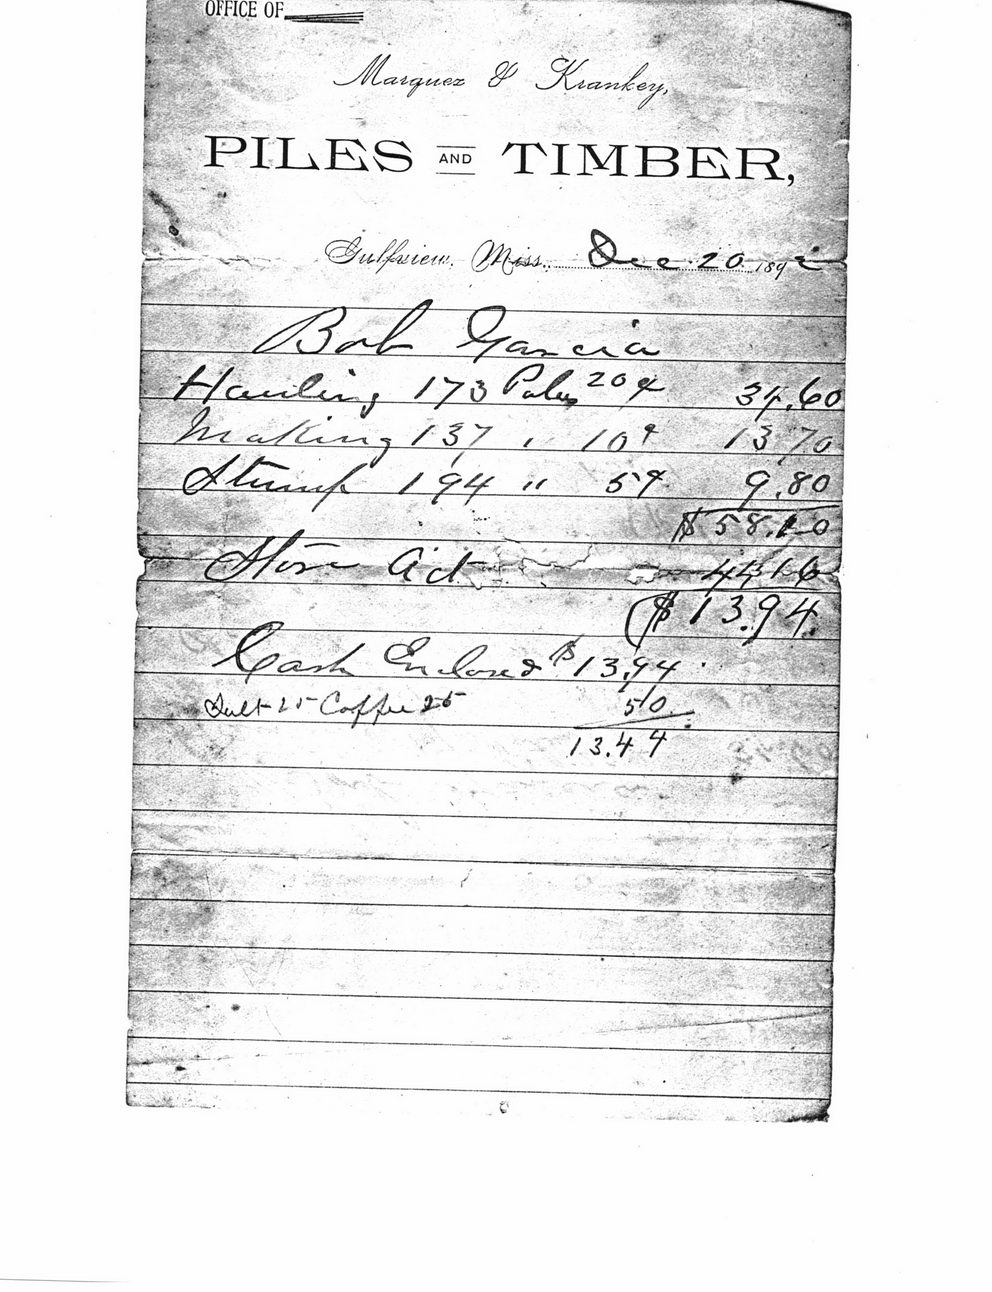 OFFICE OF
Marquez & Krankey,
PILES AND TIMBER,
Gulfview, Miss., Dec 20 1892
Bob Garcia
Hauling 173 Poles 20¢ 34.60
Making 137 " 10¢ 13.70
Stump 194 " 5¢ 9.80
$58.10
Store act 44.16
($13.94
Cash Enclosed $13.94
Salt 25 Coffee 25 50
13.44